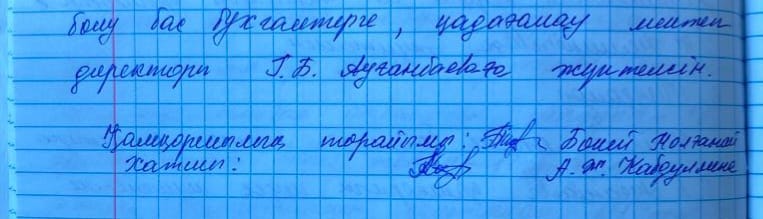 болу бас бухгалтерге, қадағалау мектеп
директоры Г.Б. Ауганбаеваға жүктелсін.
Қамқоршылық төрайымы: Бокей Нолганай
Хатшы: А.Ж. Кабдуллина